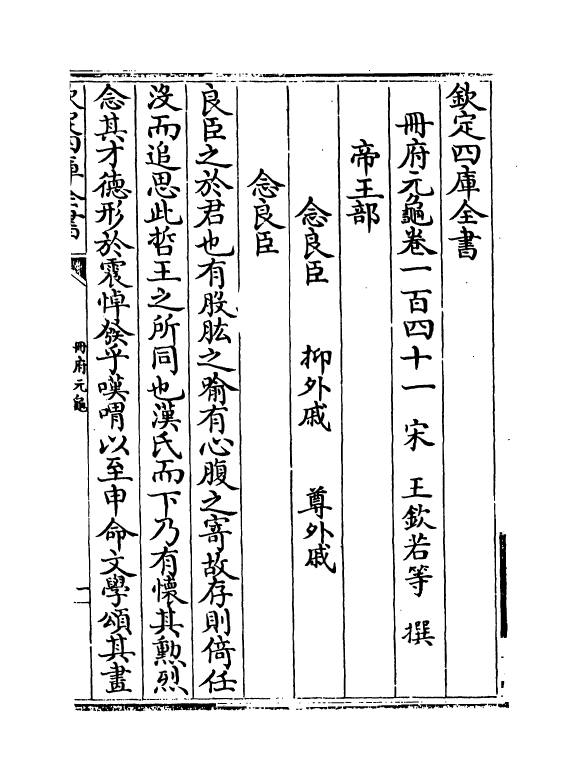 欽定四庫全書
冊府元龜卷一百四十一　宋　王欽若等　撰
帝王部
念良臣　抑外戚　尊外戚
念良臣
良臣之於君也有股肱之喻有心腹之寄故存則倚任
沒而追思此哲王之所同也漢氏而下乃有懷其勲烈
念其才德形於震悼發乎嘆喟以至申命文學頌其畫
欽定四庫全書
冊府元龜